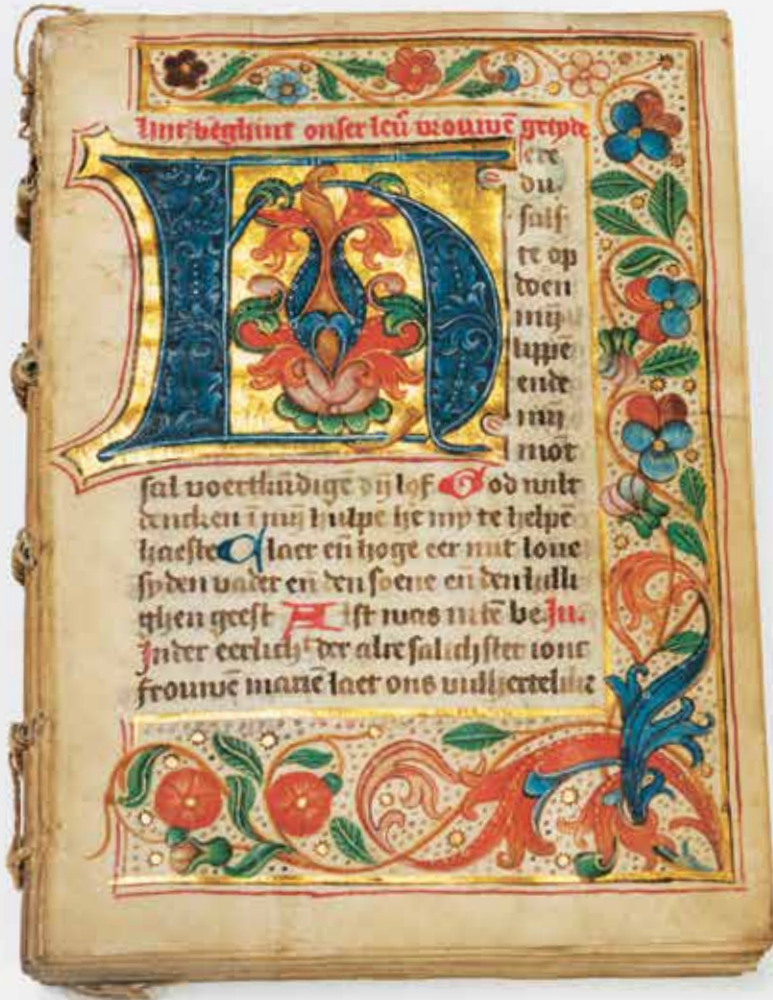 beghint onser leū vrouwē
Here
du
sals
te op
doen
mij
lippē
ende
mij
mot
sal voertkūdigē dij lof God wilt
dencken ī mij hulpe my te helpē
haeste Glaer eñ hoge eer mit loue
sy den vader eñ den soene eñ den hilli
ghen geest Alst was be. In.
In der der alre salichster ionc
frouwē mariē laet ons